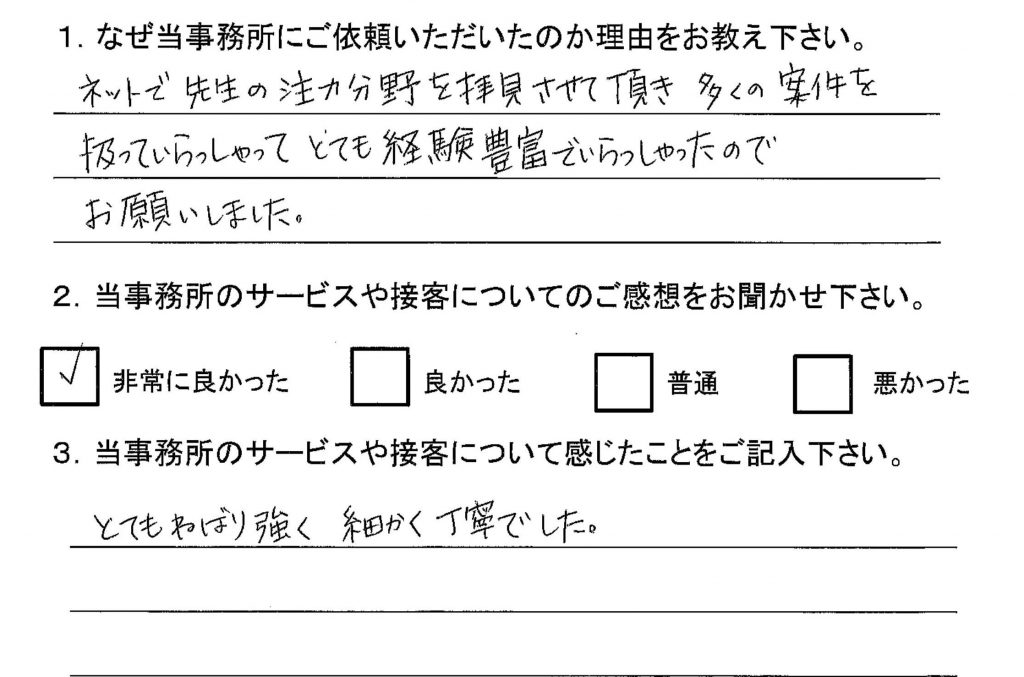 1. なぜ当事務所にご依頼いただいたのか理由をお教え下さい。
ネットで先生の注力分野を拝見させて頂き 多くの案件を
扱っていらっしゃって とても経験豊富でいらっしゃったので
お願いしました。
2. 当事務所のサービスや接客についてのご感想をお聞かせ下さい。
✓ 非常に良かった 良かった 普通 悪かった
3. 当事務所のサービスや接客について感じたことをご記入下さい。
とてもねばり強く 細かく丁寧でした。